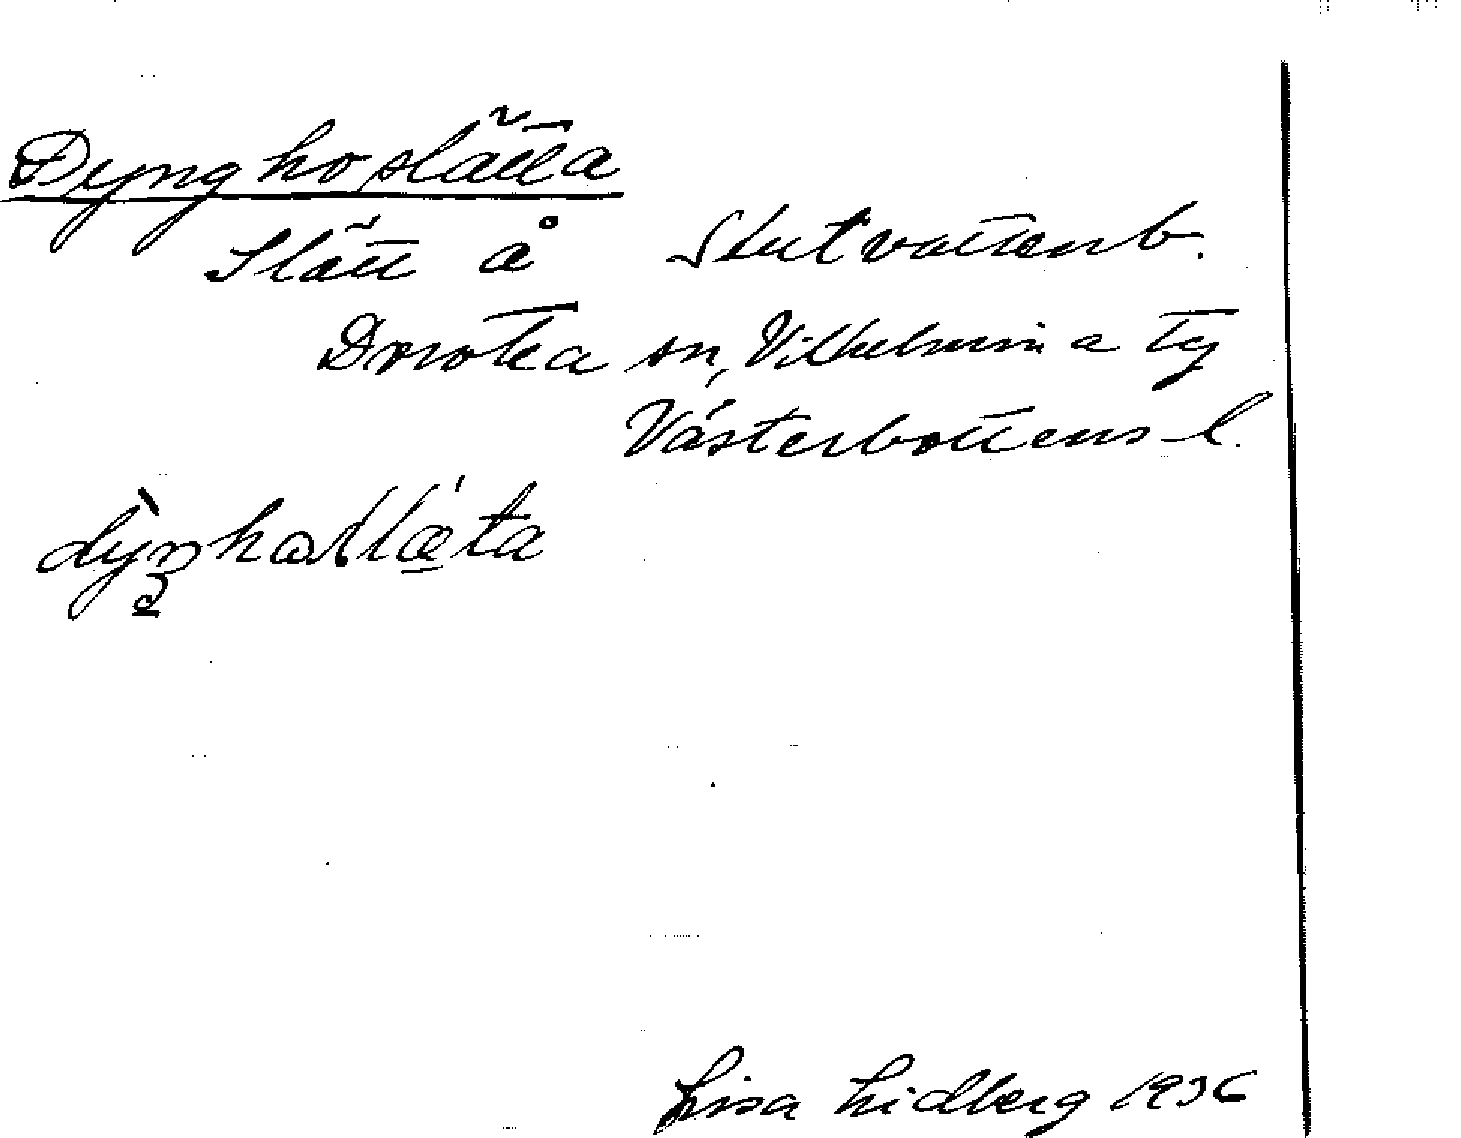 Dynghoslätta
Slått å Slutvattenb.
Dorotea sn, Vilhelmina tg
Västerbottens l.
Lisa Lidberg 1936